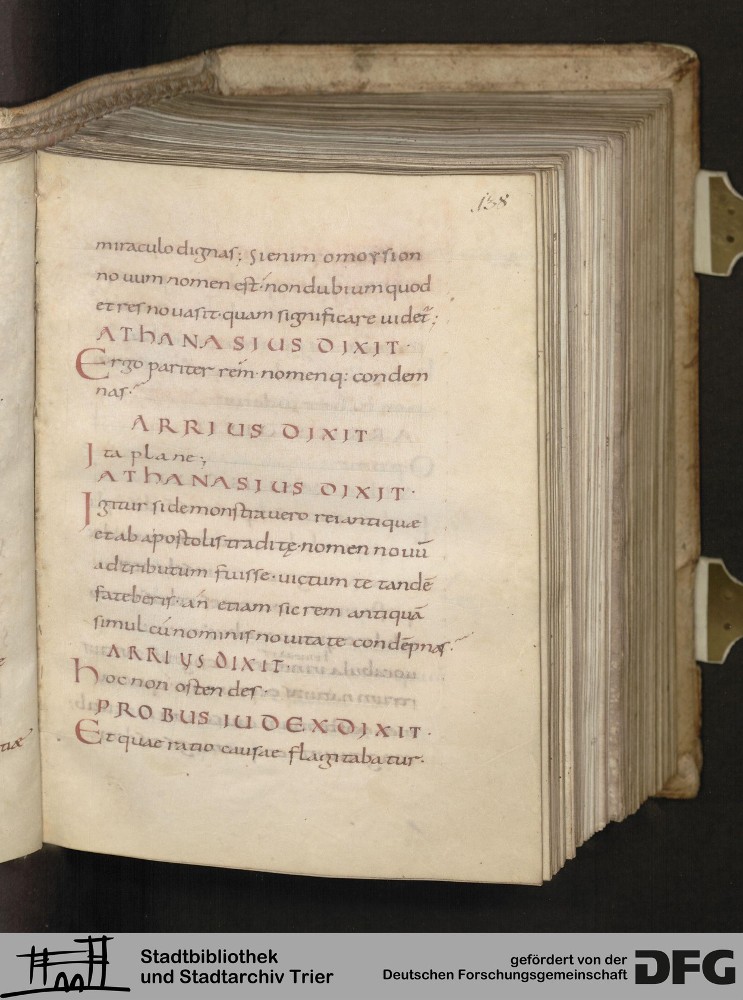 138
miraculo dignas; Si enim omoysion
nouum nomen est· non dubium quod
et res noua sit· quam significare uidet̃;
AThANASIUS DIXIT·
Ergo pariter rem· nomenq: condem
nas·
ARRIUS DIXIT
Ita plane;
AThANASIUS DIXIT·
Igitur si demonstrauero rei antiquae
et ab apostolis traditę· nomen nouū
adtributum fuisse· uictum te tandē
fateberis· an etiam sic rem antiquā
simul cū nominis nouitate condēpnas·
ARRIYS DIXIT·
hoc non ostendes·
PROBUS IUDEX DIXIT·
Et quae ratio causae flagitabatur·
tiae
Stadtbibliothek
und Stadtarchiv Trier
gefördert von der
Deutschen Forschungsgemeinschaft
DFG